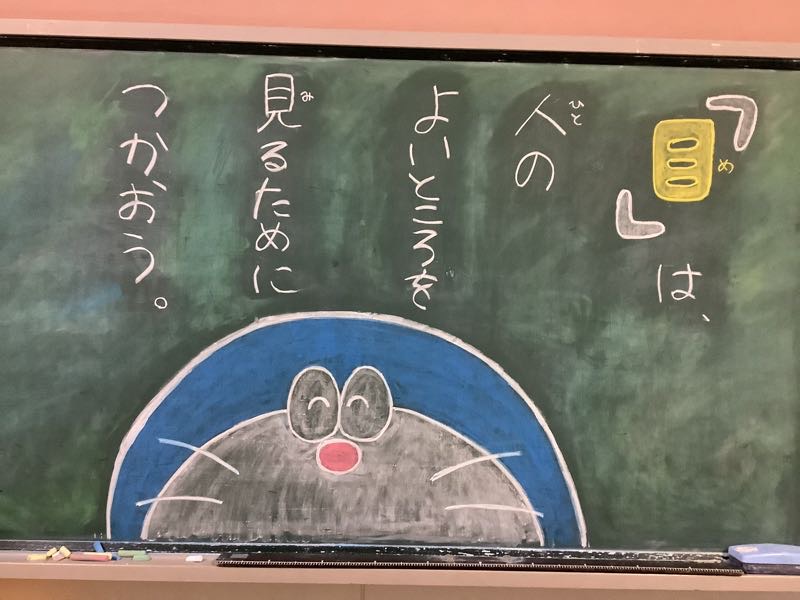 『目』は、
人の
よいところを
見るために
つかおう。
め
ひと
み